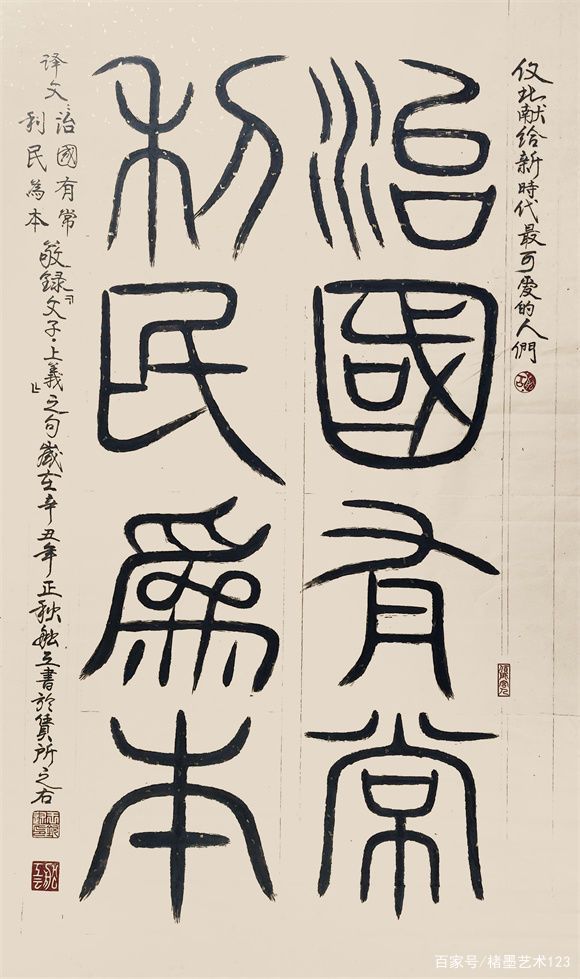 仅此献给新時代最可爱的人們
治國有常
利民爲本
译文 治國有常
利民為本
敬録「文子·上義」之句歲在辛丑年正秋 書於賃所之右
百家号/楮墨艺术123